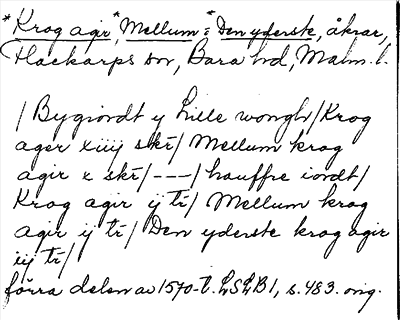 *Krog agir, *Mellum = *Den yderste, åkrar,
Flackarps sn, Bara hd, Malm. l.
/ Bygiordt y Lille wongh / Krog
ager xiiij skr̄ / Mellum krog
agir x skr̄ / --- / hauffre iordt /
Krog agir ij tr̄ / Mellum krog
agir ij tr̄ / Den yderste krog agir
iij tr̄ /
förra delen av 1570-t. LSLB1, s. 483. orig.